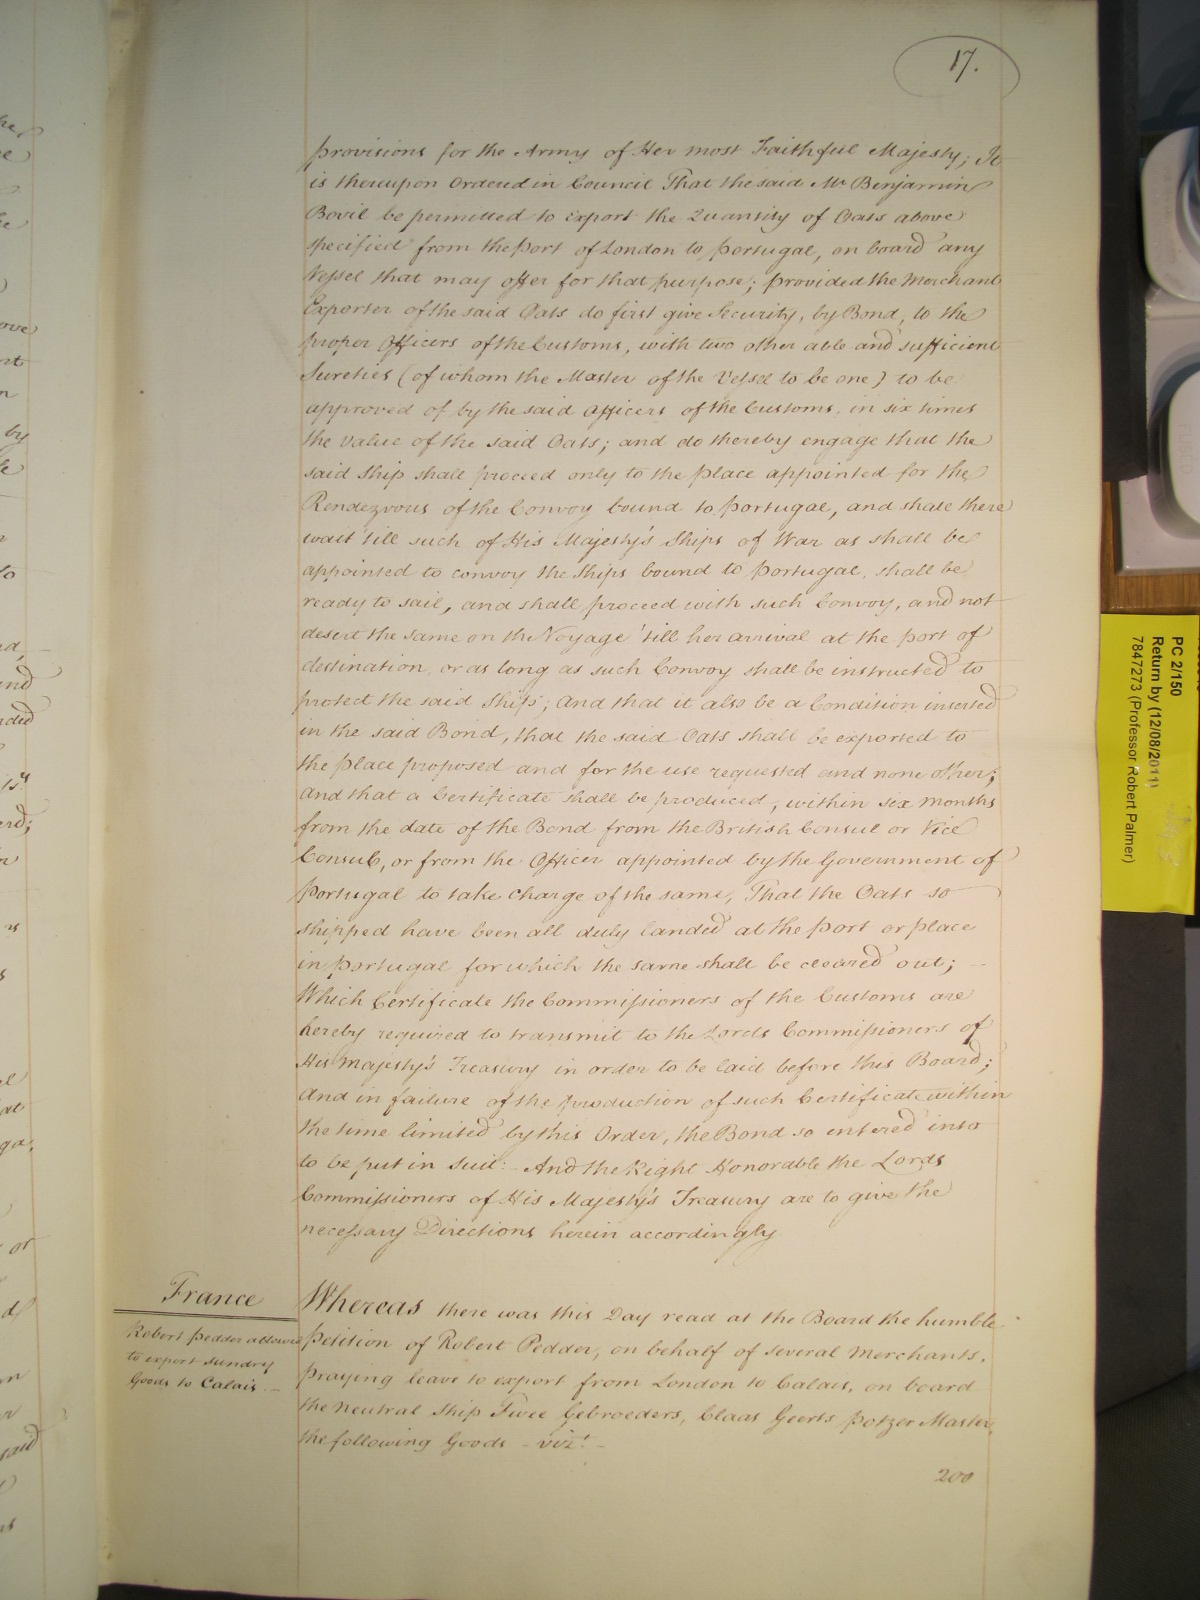 17.
provisions for the Army of Her most Faithful Majesty; It
is thereupon Ordered in Council That the said Mr Benjamin
Bovil be permitted to export the Quantity of Oats above
specified from the Port of London to Portugal, on board any
Vessel that may offer for that purpose; provided the Merchant
Exporter of the said Oats do first give Security, by Bond, to the
proper Officers of the Customs, with two other able and sufficient
Sureties (of whom the Master of the Vessel to be one) to be
approved of by the said Officers of the Customs, in six times
the value of the said Oats; and do thereby engage that the
said Ship shall proceed only to the place appointed for the
Rendezvous of the Convoy bound to Portugal, and shall there
wait 'till such of His Majesty's Ships of War as shall be
appointed to convoy the Ships bound to Portugal, shall be
ready to sail, and shall proceed with such Convoy, and not
desert the same on the Voyage 'till her arrival at the port of
destination, or as long as such Convoy shall be instructed to
protect the said Ship; And that it also be a Condition inserted
in the said Bond, that the said Oats shall be exported to
the place proposed and for the use requested and none other;
And that a Certificate shall be produced, within six months
from the date of the Bond from the British Consul or Vice
Consul, or from the Officer appointed by the Government of
Portugal to take charge of the same, That the Oats so
shipped have been all duly landed at the Port or place
in Portugal for which the same shall be cleared out; -
Which Certificate the Commissioners of the Customs are
hereby required to transmit to the Lords Commissioners of
His Majesty's Treasury in order to be laid before this Board;
And in failure of the production of such Certificate within
the time limited by this Order, the Bond so entered into
to be put in Suit: And the Right Honorable the Lords
Commissioners of His Majesty's Treasury are to give the
necessary Directions herein accordingly
France
Robert Pedder allowed
to export sundry
Goods to Calais. -
Whereas there was this Day read at the Board the humble
Petition of Robert Pedder, on behalf of several Merchants,
praying leave to export from London to Calais, on board
the Neutral Ship Twee Gebroeders, Claas Geerts Potzer Master,
the following Goods - vizt. -
200
PC 2/150
Return by (12/08/2011)
7847273 (Professor Robert Palmer)